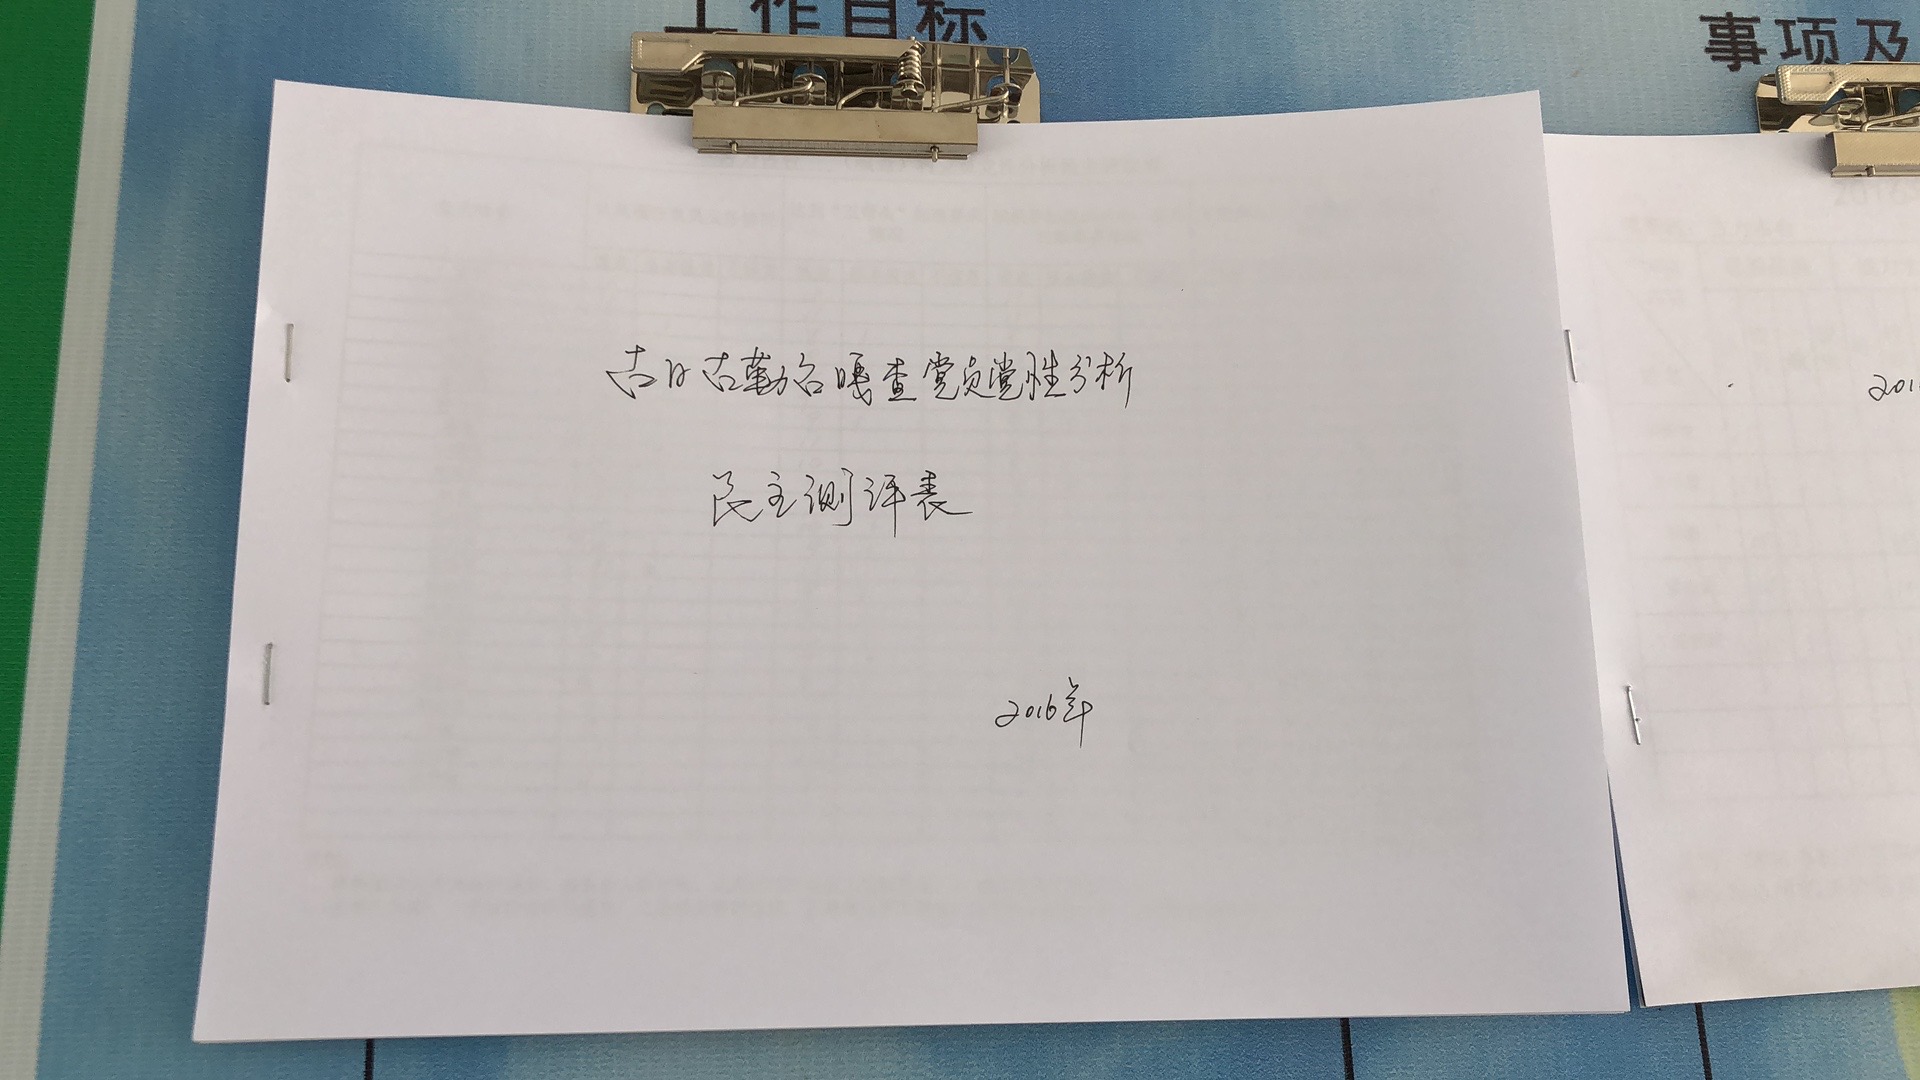 工作目标
事项及
古日古勤台嘎查党员党性分析
民主测评表
2016年
201